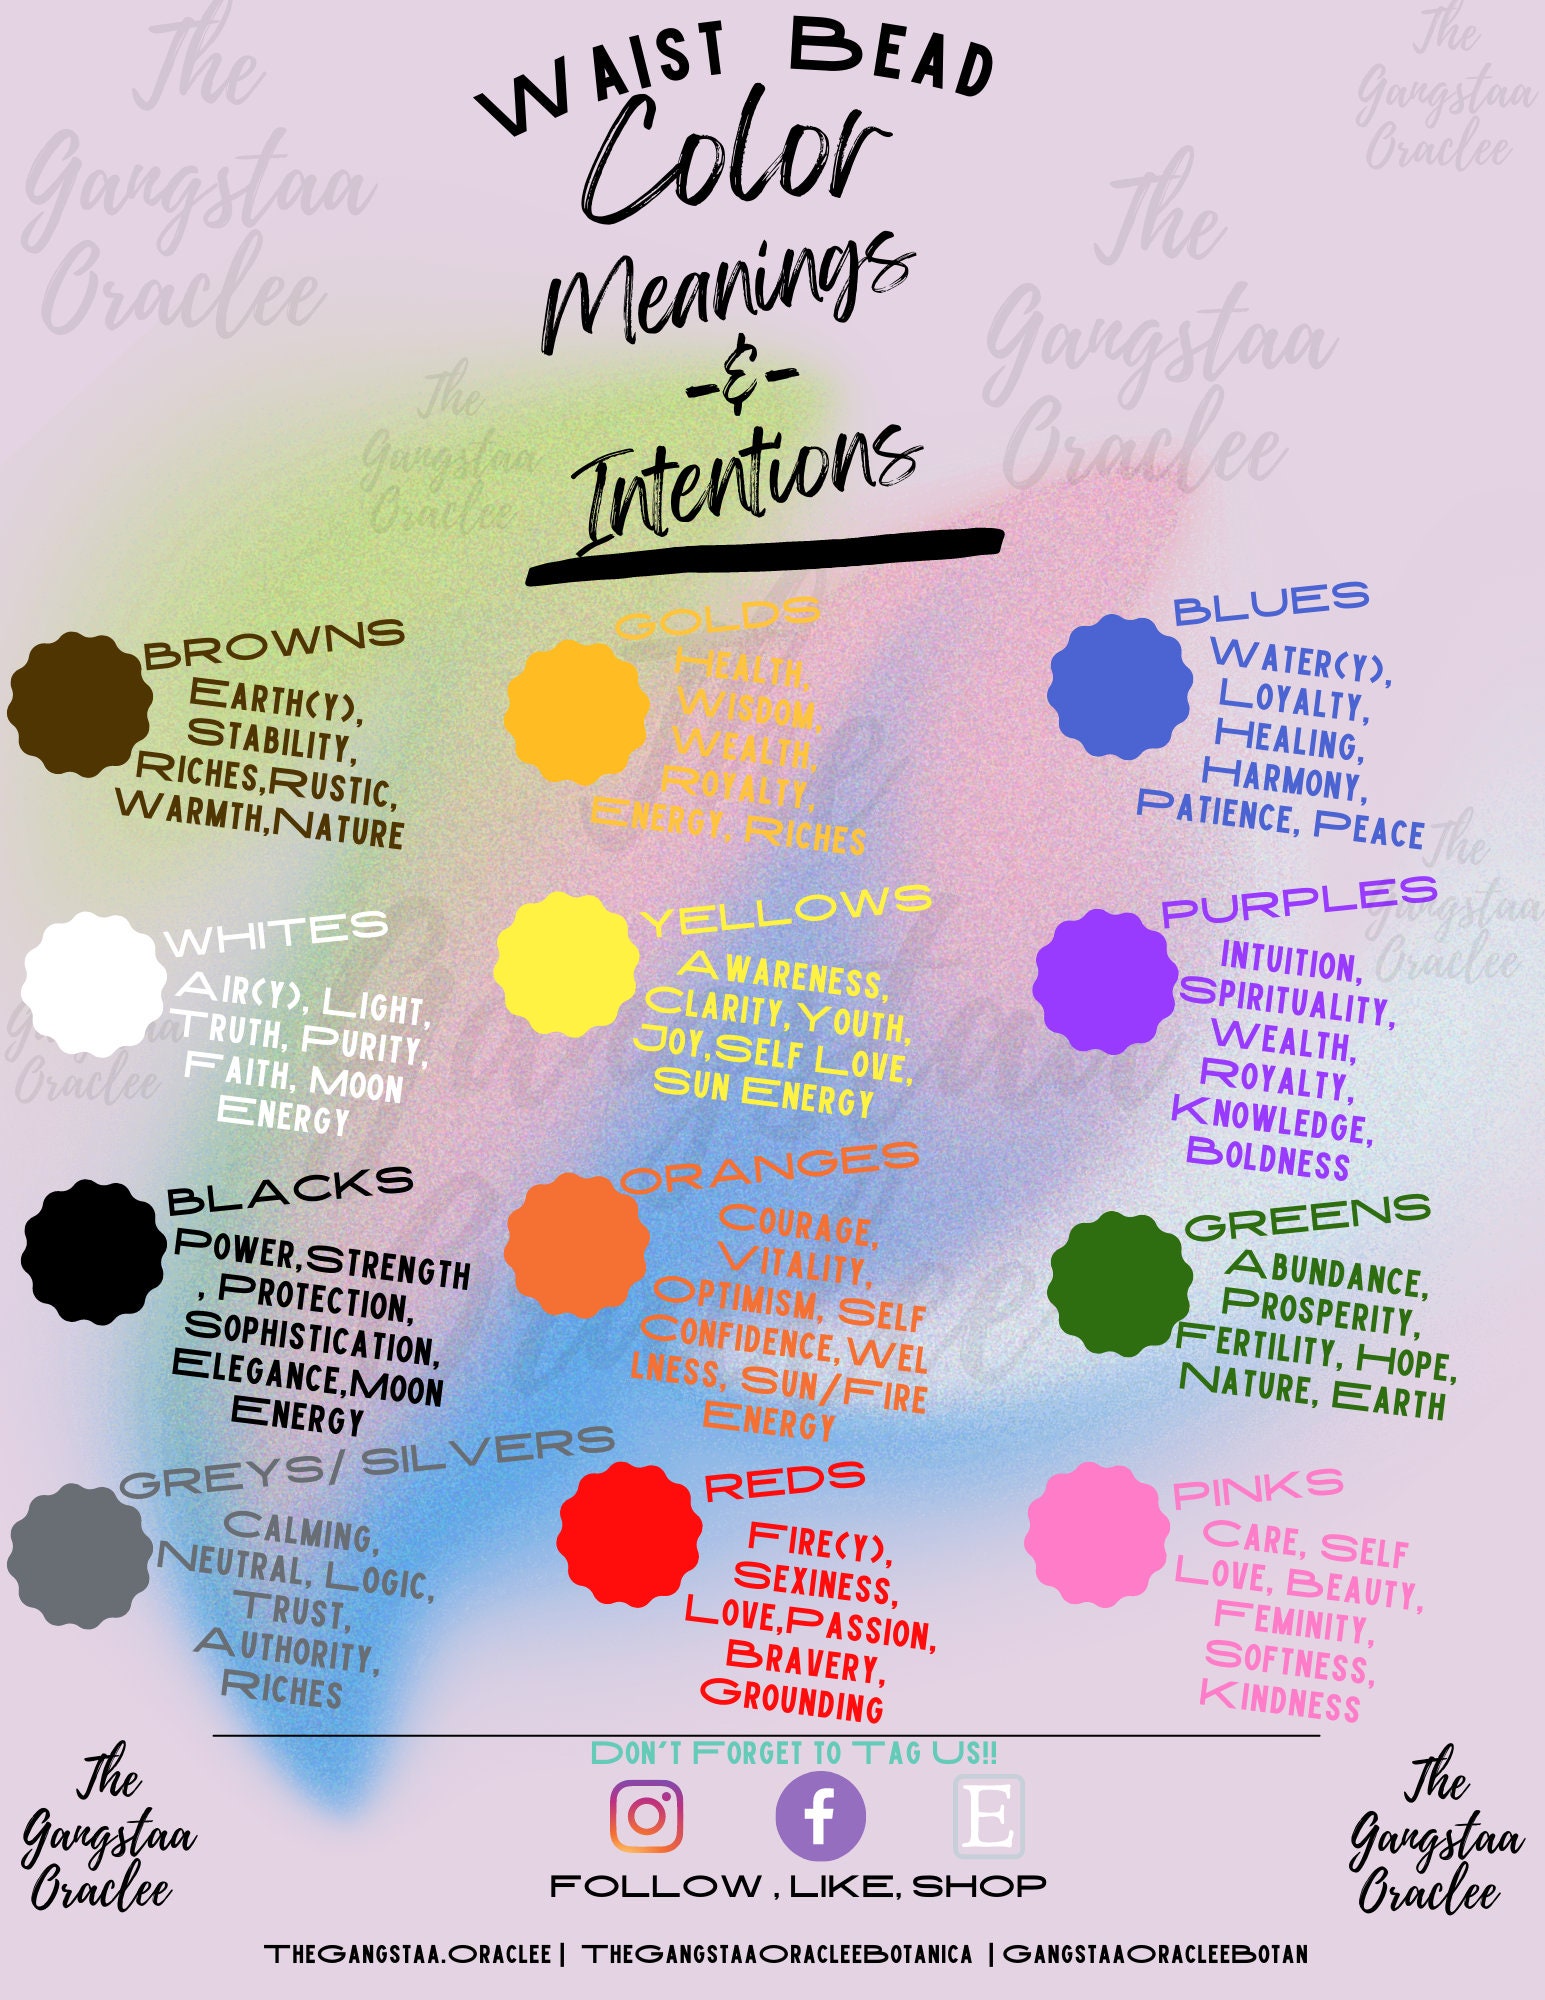 Waist Bead
Color
Meanings
-&-
Intentions
Browns
Earth(y),
Stability,
Riches,Rustic,
Warmth,Nature
Golds
Health,
Wisdom,
Wealth,
Royalty,
Energy, Riches
Blues
Water(y),
Loyalty,
Healing,
Harmony,
Patience, Peace
Whites
Air(y), Light,
Truth, Purity,
Faith, Moon
Energy
Yellows
Awareness,
Clarity, Youth,
Joy,Self Love,
Sun Energy
Purples
Intuition,
Spirituality,
Wealth,
Royalty,
Knowledge,
Boldness
Blacks
Power,Strength
, Protection,
Sophistication,
Elegance,Moon
Energy
Oranges
Courage,
Vitality,
Optimism, Self
Confidence,Wel
lness, Sun/Fire
Energy
Greens
Abundance,
Prosperity,
Fertility, Hope,
Nature, Earth
Greys/ Silvers
Calming,
Neutral, Logic,
Trust,
Authority,
Riches
Reds
Fire(y),
Sexiness,
Love,Passion,
Bravery,
Grounding
Pinks
Care, Self
Love, Beauty,
Feminity,
Softness,
Kindness
Don't Forget to Tag Us!!
f
E
FOLLOW , LIKE, SHOP
The
Gangstaa
Oraclee
The
Gangstaa
Oraclee
TheGangstaa.Oraclee | TheGangstaaOracleeBotanica | GangstaaOracleeBotan
The
Gangstaa
Oraclee
The
Gangstaa
Oraclee
The
Gangstaa
Oraclee
The
Gangstaa
Oraclee
The
Gangstaa
Oraclee